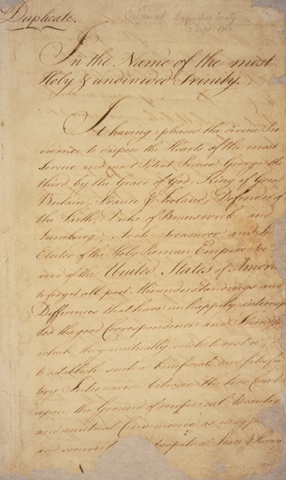 Duplicate.
Original Definitive Treaty
Sept. 1783
In the Name of the most
Holy & undivided Trinity.
It having pleased the divine Pro
vidence to dispose the Hearts of the most
Serene and most Potent Prince George the
third, by the Grace of God, King of Great
Britain, France & Ireland, Defender of
the Faith, Duke of Brunswick and
Luneburg, Arch Treasurer and
Elector of the Holy Roman Empire &c
and of the United States of America
to forget all past Misunderstandings and
Differences that have unhappily interrup
ted the good Correspondence and Friendship
which they mutually wish to restore;
to establish such a beneficial and satisfac
tory Intercourse between the two Countries
upon the Ground of reciprocal Advantages
and mutual Convenience as may
and secure perpetual Peace & Harmony